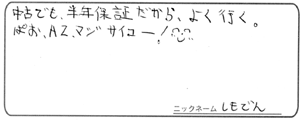 中古でも、半年保証だから、よく行く。
ぱお、AZ、マジサイコー!
ニックネーム しもでん